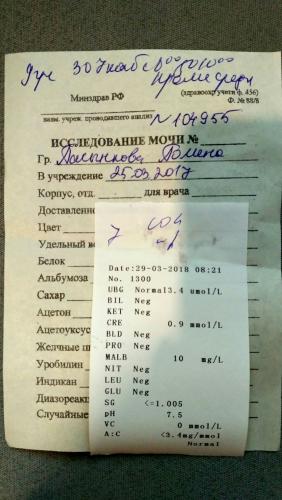 307 каб 8⁰⁰ до 10⁰⁰
кроме среды
Минздрав РФ (здравоохр учетн ф. 456)
Ф. № 88/8
наим. учреж. проводившего анализ N 104955
ИССЛЕДОВАНИЕ МОЧИ №
Гр.
В учреждение 25.03.2017
Корпус, отд. для врача
Доставлено
Цвет
Удельный
Белок
Альбумоза
Сахар
Ацетон
Ацетоуксус
Желчные
Уробилин
Индикан
Диазореак
Случайные
Date:29-03-2018 08:21
No. 1300
UBG Normal3.4 umol/L
BIL Neg
KET Neg
CRE 0.9 mmol/L
BLD Neg
PRO Neg
MALB 10 mg/L
NIT Neg
LEU Neg
GLU Neg
SG <=1.005
pH 7.5
VC 0 mmol/L
A:C <3.4mg/mmol
Normal